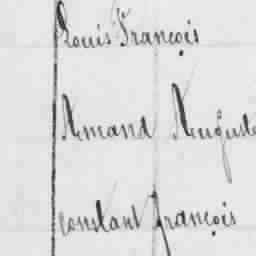 Louis François
Armand Auguste
constant françois